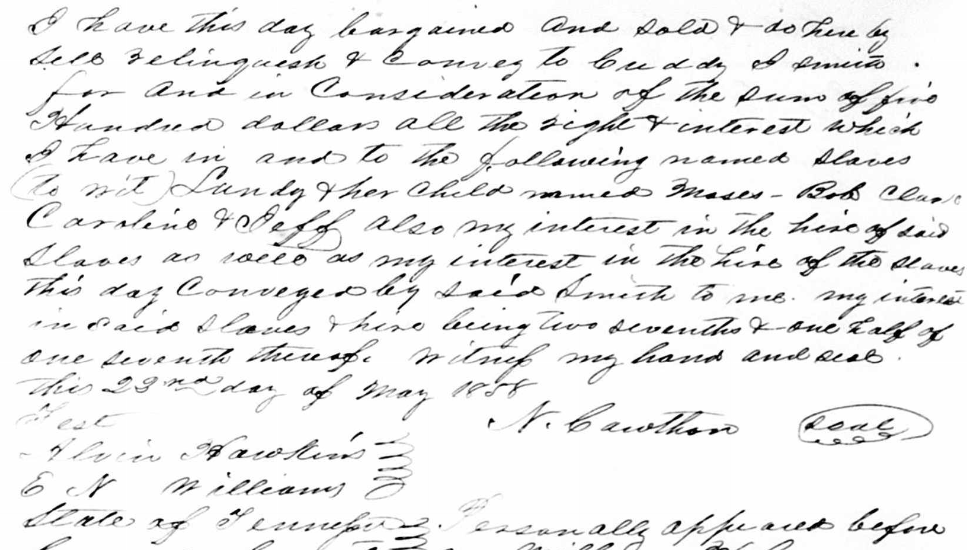 I have this day bargained and sold & do here by
sell relinquish & convey to Cuddy I Smith .
for and in Consideration of the sum of five
Hundred dollars all the right & interest which
I have in and to the following named slaves
(to wit) Lundy & her child named Moses - Bob
Caroline & Jeff also my interest in the hire of said
slaves as well as my interest in the hire of the slaves
this day Conveyed by said Smith to me. my interest
in said slaves & hire being two sevenths & one half of
one seventh thereof. Witness my hand and seal.
this 22nd day of May 1858
Test N. Cawthon seal
Alvin Hawkins
E N Williams
State of Tennessee Personally appeared before